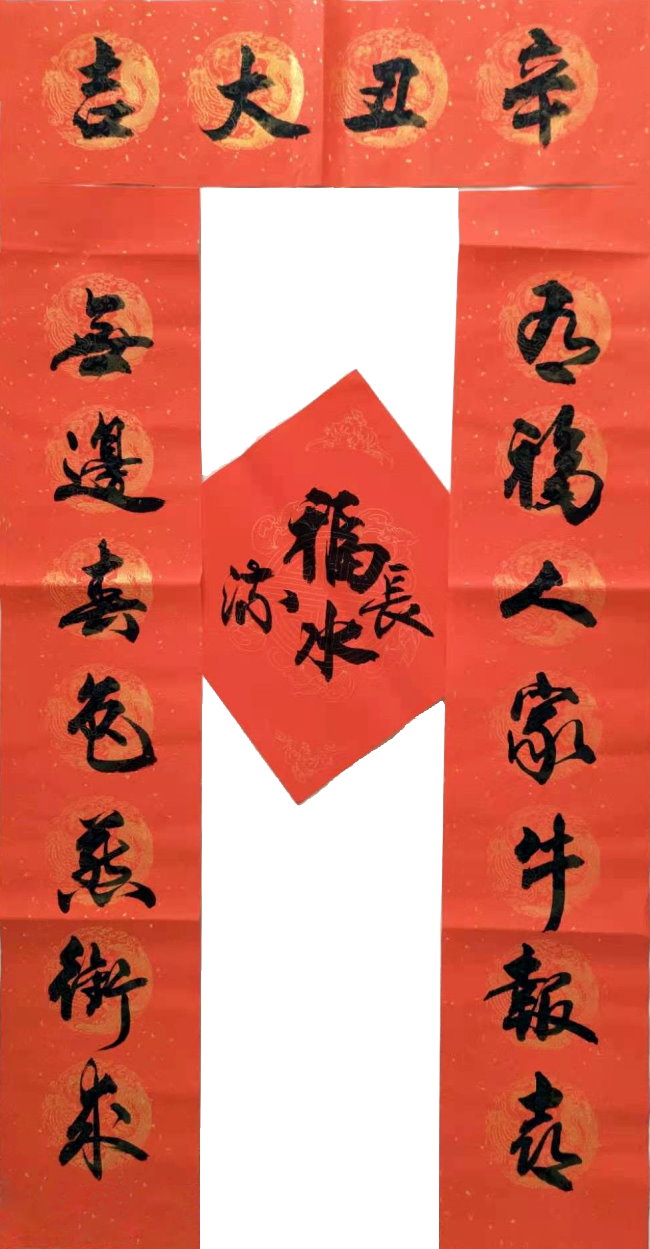 辛丑大吉
有福人家牛報喜
無邊春色燕銜來
福水長滿